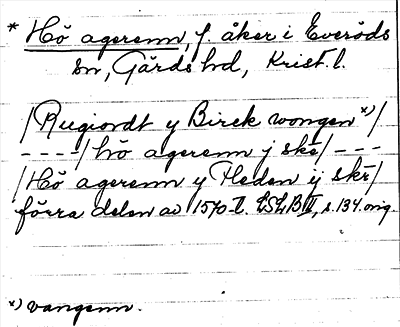 * Hö agerenn, f. åker i Everöds
sn, Gärds hd, Krist. l.
/Rugiordt y Birck wongen x)/
----/hö agerenn j skẽ/---
/Hö agerenn y Heden ij skẽ/
förra delen av 1570-t. LSLB III, s. 134. orig.
x) vangenn.